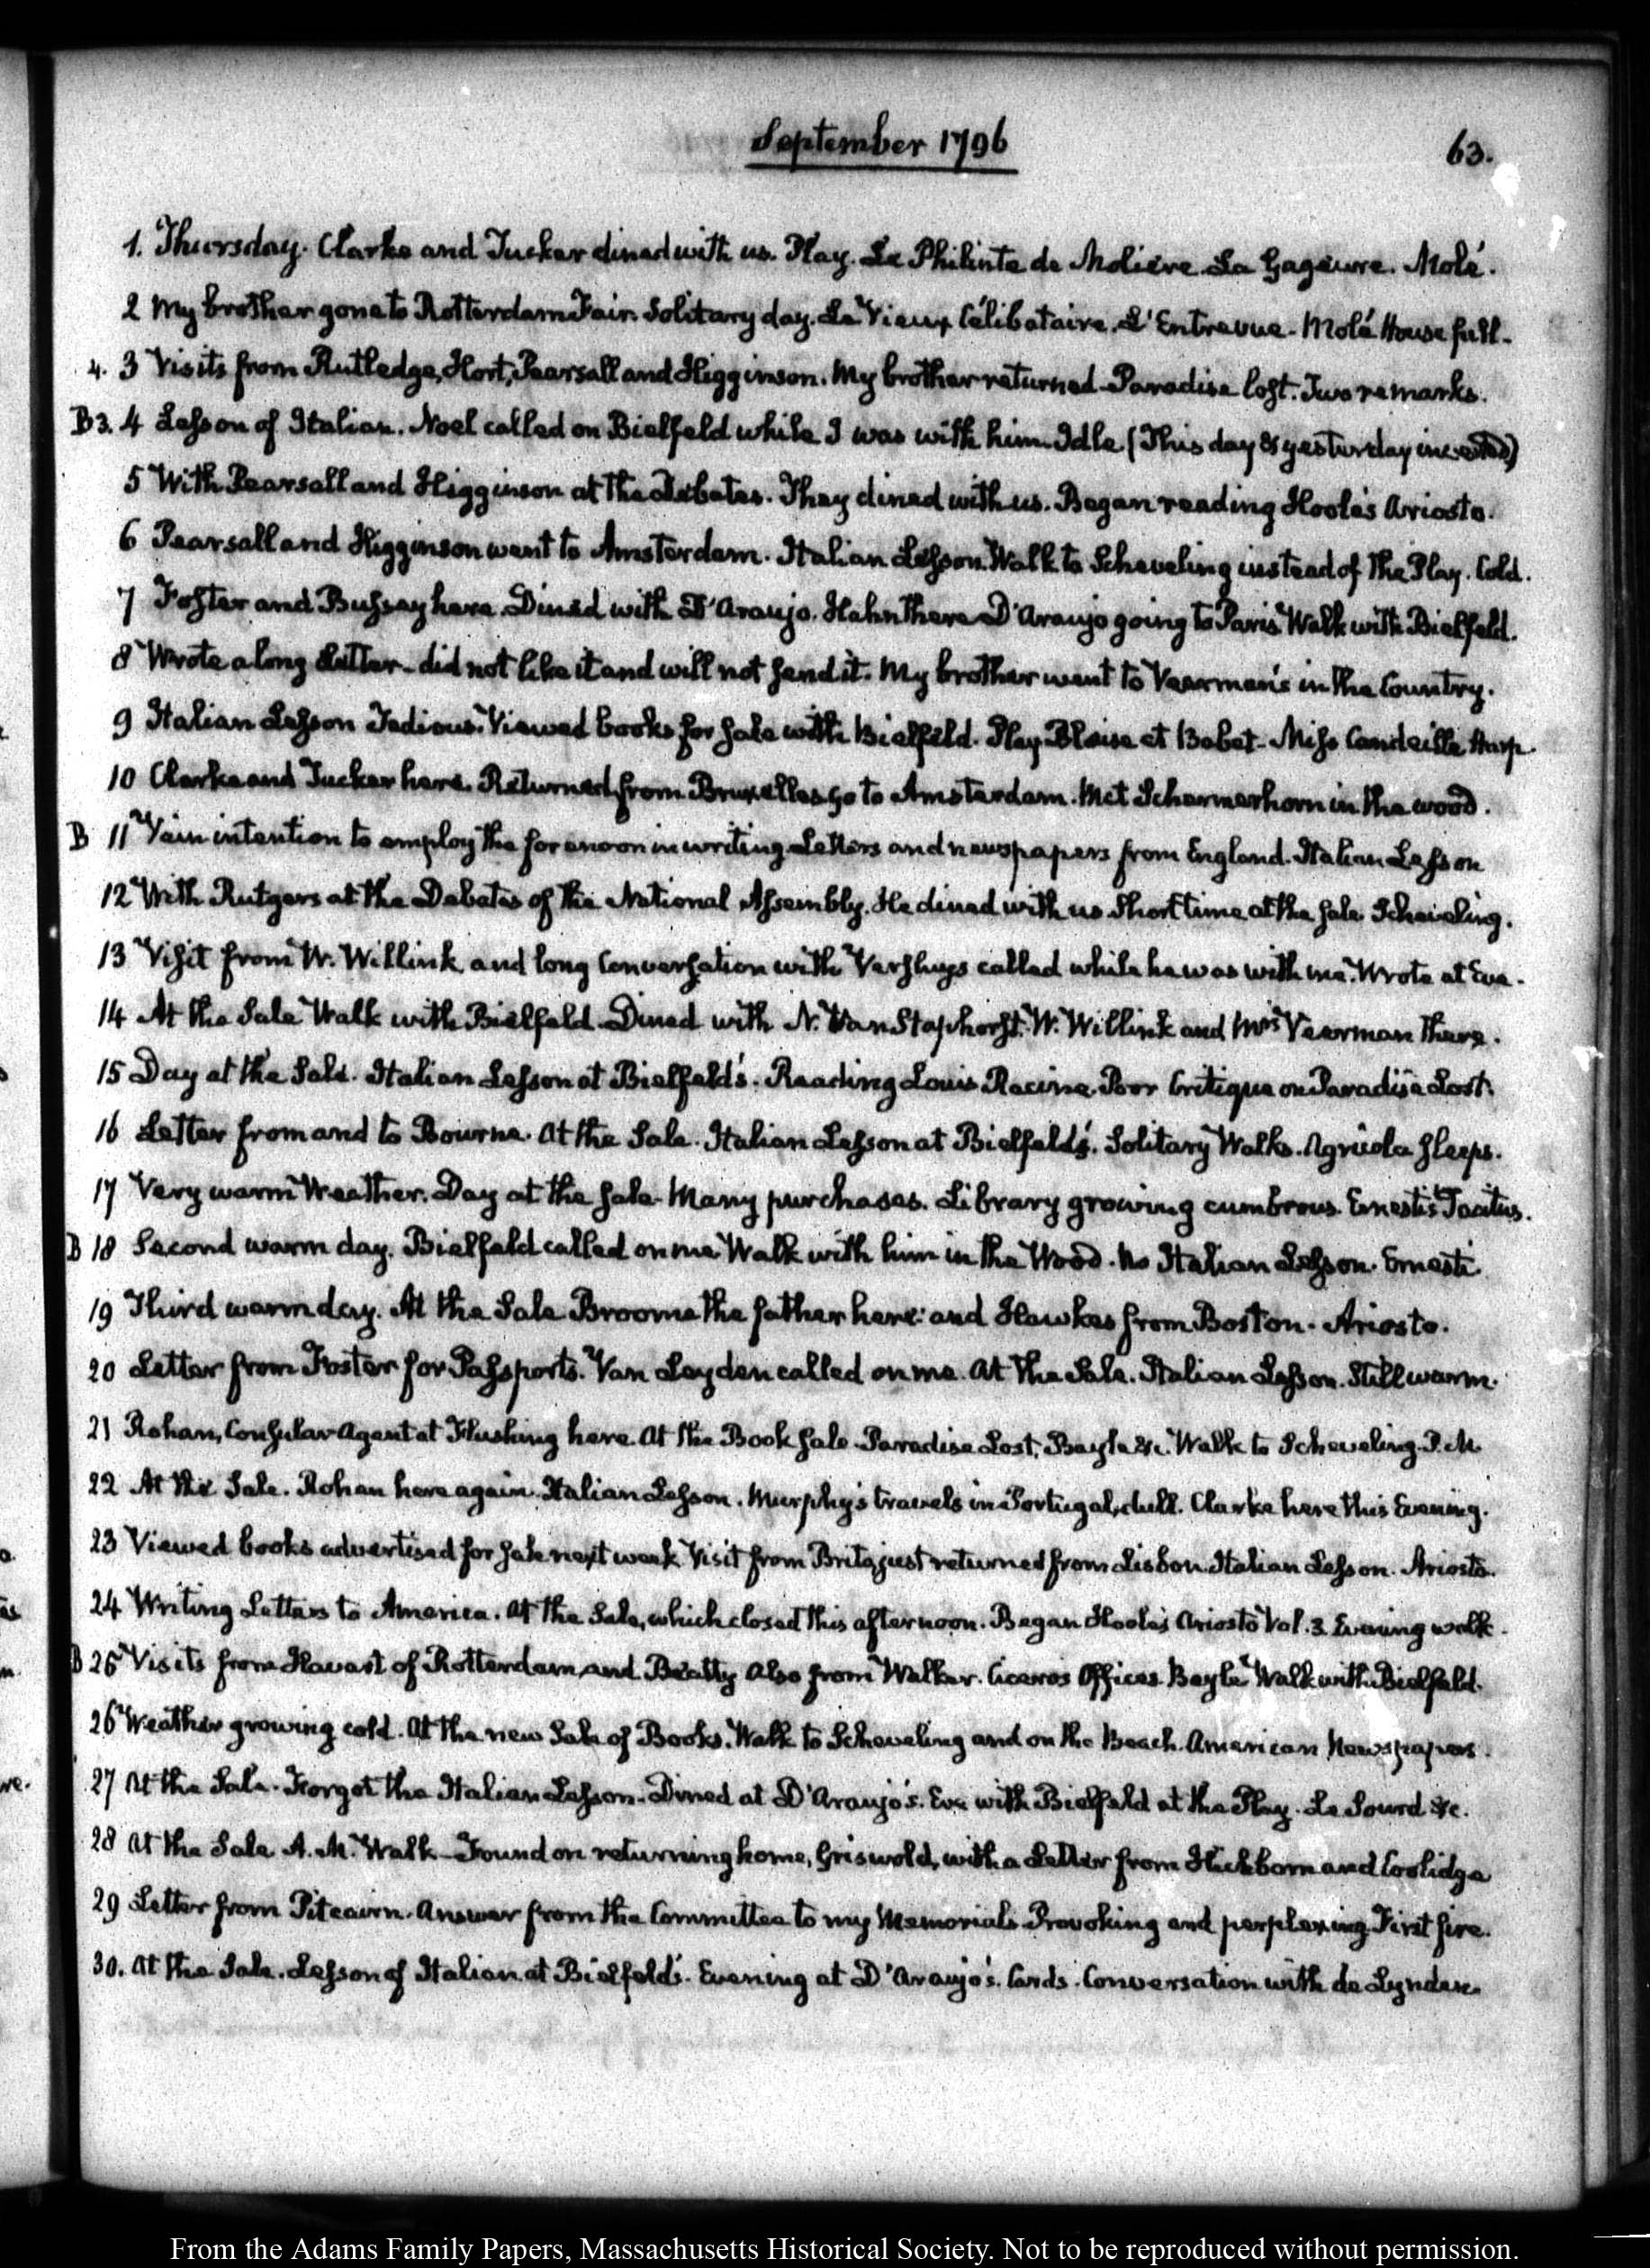 September 1796
63.
1. Thursday. Clarke and Tucker dined with us. Play. Le Philinte de Moliére. La Gageure. Molé.
2 My brother gone to Rotterdam Fair. Solitary day. Le Vieux Célibataire. L'Entrevue - Molé House full.
4. 3 Visits from Rutledge, Hort, Pearsall and Higginson. My brother returned. Paradise lost. Two remarks.
B3. 4 Lesson of Italian. Noel called on Bielfeld while I was with him. Idle. (This day & yesterday inverted)
5 With Pearsall and Higginson at the Debates. They dined with us. Began reading Hoole's Ariosto.
6 Pearsall and Higginson went to Amsterdam. Italian Lesson. Walk to Scheveling instead of the Play. Cold.
7 Foster and Bussey here. Dined with D'Araujo. Hahn there. D'Araujo going to Paris. Walk with Bielfeld.
8 Wrote a long Letter - did not like it and will not send it. My brother went to Veerman's in the Country.
9 Italian Lesson Tedious. Viewed books for sale with Bielfeld. Play. Blaise et Babet. Miss Candeille Harp.
10 Clarke and Tucker here. Returned from Bruxelles go to Amsterdam. Met Schermerhorn in the wood.
B 11 Vain intention to employ the forenoon in writing. Letters and newspapers from England. Italian Lesson
12 With Rutgers at the Debates of the National Assembly. He dined with us. Short time at the sale. Scheveling.
13 Visit from W. Willink, and long Conversation with Vershuys called while he was with me. Wrote at Eve.
14 At the Sale. Walk with Bielfeld. Dined with N. Van Staphorst. W. Willink and Mrs. Veerman there.
15 Day at the Sale. Italian Lesson at Bielfeld's. Reading Louis Racine. Poor Critique on Paradise Lost.
16 Letter from and to Bourne. At the Sale. Italian Lesson at Bielfeld's. Solitary Walks. Agricola sleeps.
17 Very warm Weather. Day at the sale. Many purchases. Library growing cumbrous. Ernesti's Tacitus.
B 18 Second warm day. Bielfeld called on me. Walk with him in the Wood. No Italian Lesson. Ernesti.
19 Third warm day. At the Sale. Broome the father here: and Hawkes from Boston. Ariosto.
20 Letter from Foster for Passports. Van Leyden called on me. At the Sale. Italian Lesson. Still warm.
21 Rohan, Consular Agent at Flushing here. At the Book sale. Paradise Lost, Bayle &c. Walk to Scheveling. P.M.
22 At the Sale. Rohan here again. Italian Lesson. Murphy's travels in Portugal, dull. Clarke here this Evening.
23 Viewed books advertised for sale next week. Visit from Brito, just returned from Lisbon. Italian Lesson. Ariosto.
24 Writing Letters to America. At the Sale, which closed this afternoon. Began Hoole's Ariosto Vol. 3. Evening walk.
B 25 Visits from Havart of Rotterdam, and Beatty. Also from Walker. Ciceros Offices. Bayle. Walk with Bielfeld.
26 Weather growing cold. At the new Sale of Books. Walk to Scheveling and on the Beach. American Newspapers.
27 At the Sale. Forgot the Italian Lesson. Dined at D'Araujo's. Eve with Bielfeld at the Play. Le Sourd &c.
28 At the Sale A.M. Walk - Found on returning home, Griswold, with a Letter from Hichborn and Coolidge
29 Letter from Pitcairn. Answer from the Committee to my Memorials. Provoking and perplexing. First fire.
30. At the Sale. Lesson of Italian at Bielfeld's. Evening at D'Araujo's. Cards. Conversation with de Lynden.
From the Adams Family Papers, Massachusetts Historical Society. Not to be reproduced without permission.